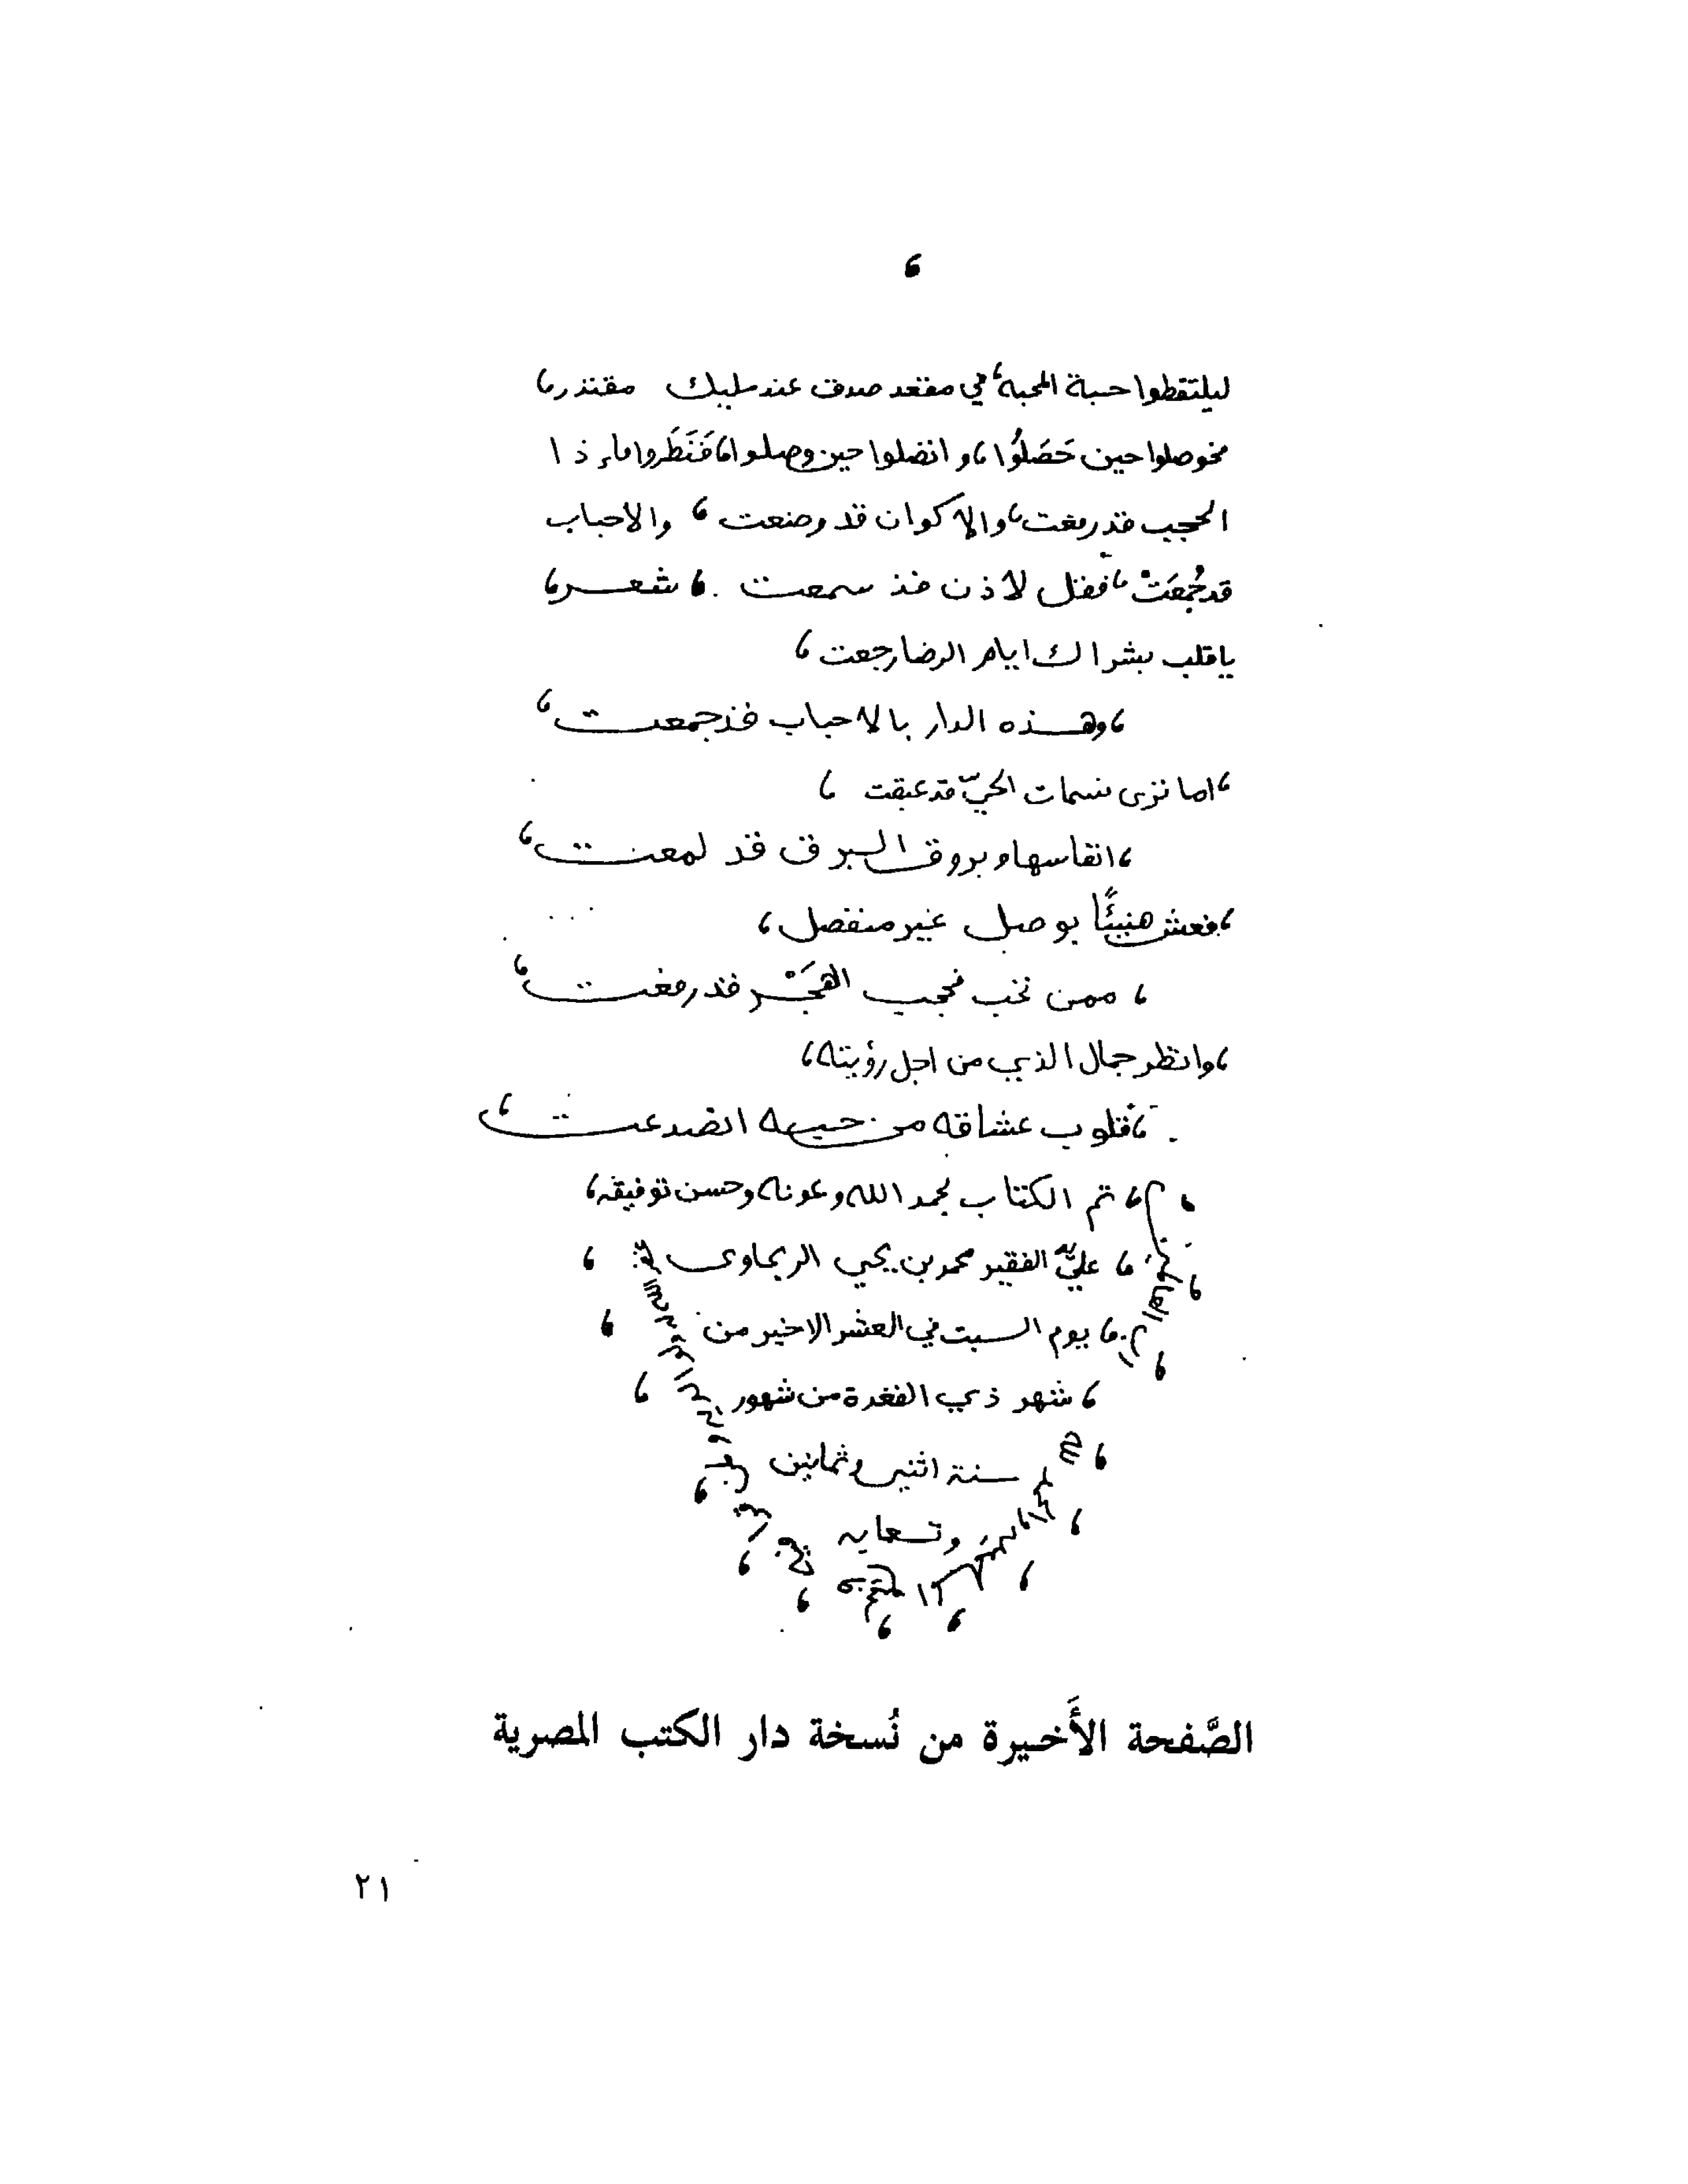 ليلتقطوا حبة المحبه في مقعد صدق عند مليك مقتدر
فوصلوا حين حَصَلُوا وانفصلوا حين وصلوا فَنَظَروا فاذا
الحجب قد رفعت والاكوان قد وضعت والاحباب
قد جُمعَتْ فقل لاذن قد سمعت شعر
يا قلب بشراك ايام الرضا رجعت
وهذه الدار بالاحباب قد جمعت
اما ترى نسمات الحيّ قد عبقت
انفاسها وبروق البرق قد لمعت
فعش هنيئًا بوصل غير منفصل
ممن تحب فحجب الهَجْر قد رفعت
وانظر جمال الذي من اجل رؤيته
قلوب عشاقه من حبه انصدعت
تم الكتاب بحمد الله وعونه وحسن توفيقه
علي يد الفقير محمد بن يحي الريحاوى
يوم السبت في العشر الاخير من
شهر ذي القعدة من شهور
سنة اثنين وثمانين
وتسعمايه
الصَّفحة الأَخيرة من نُسخة دار الكتب المصرية
٢١